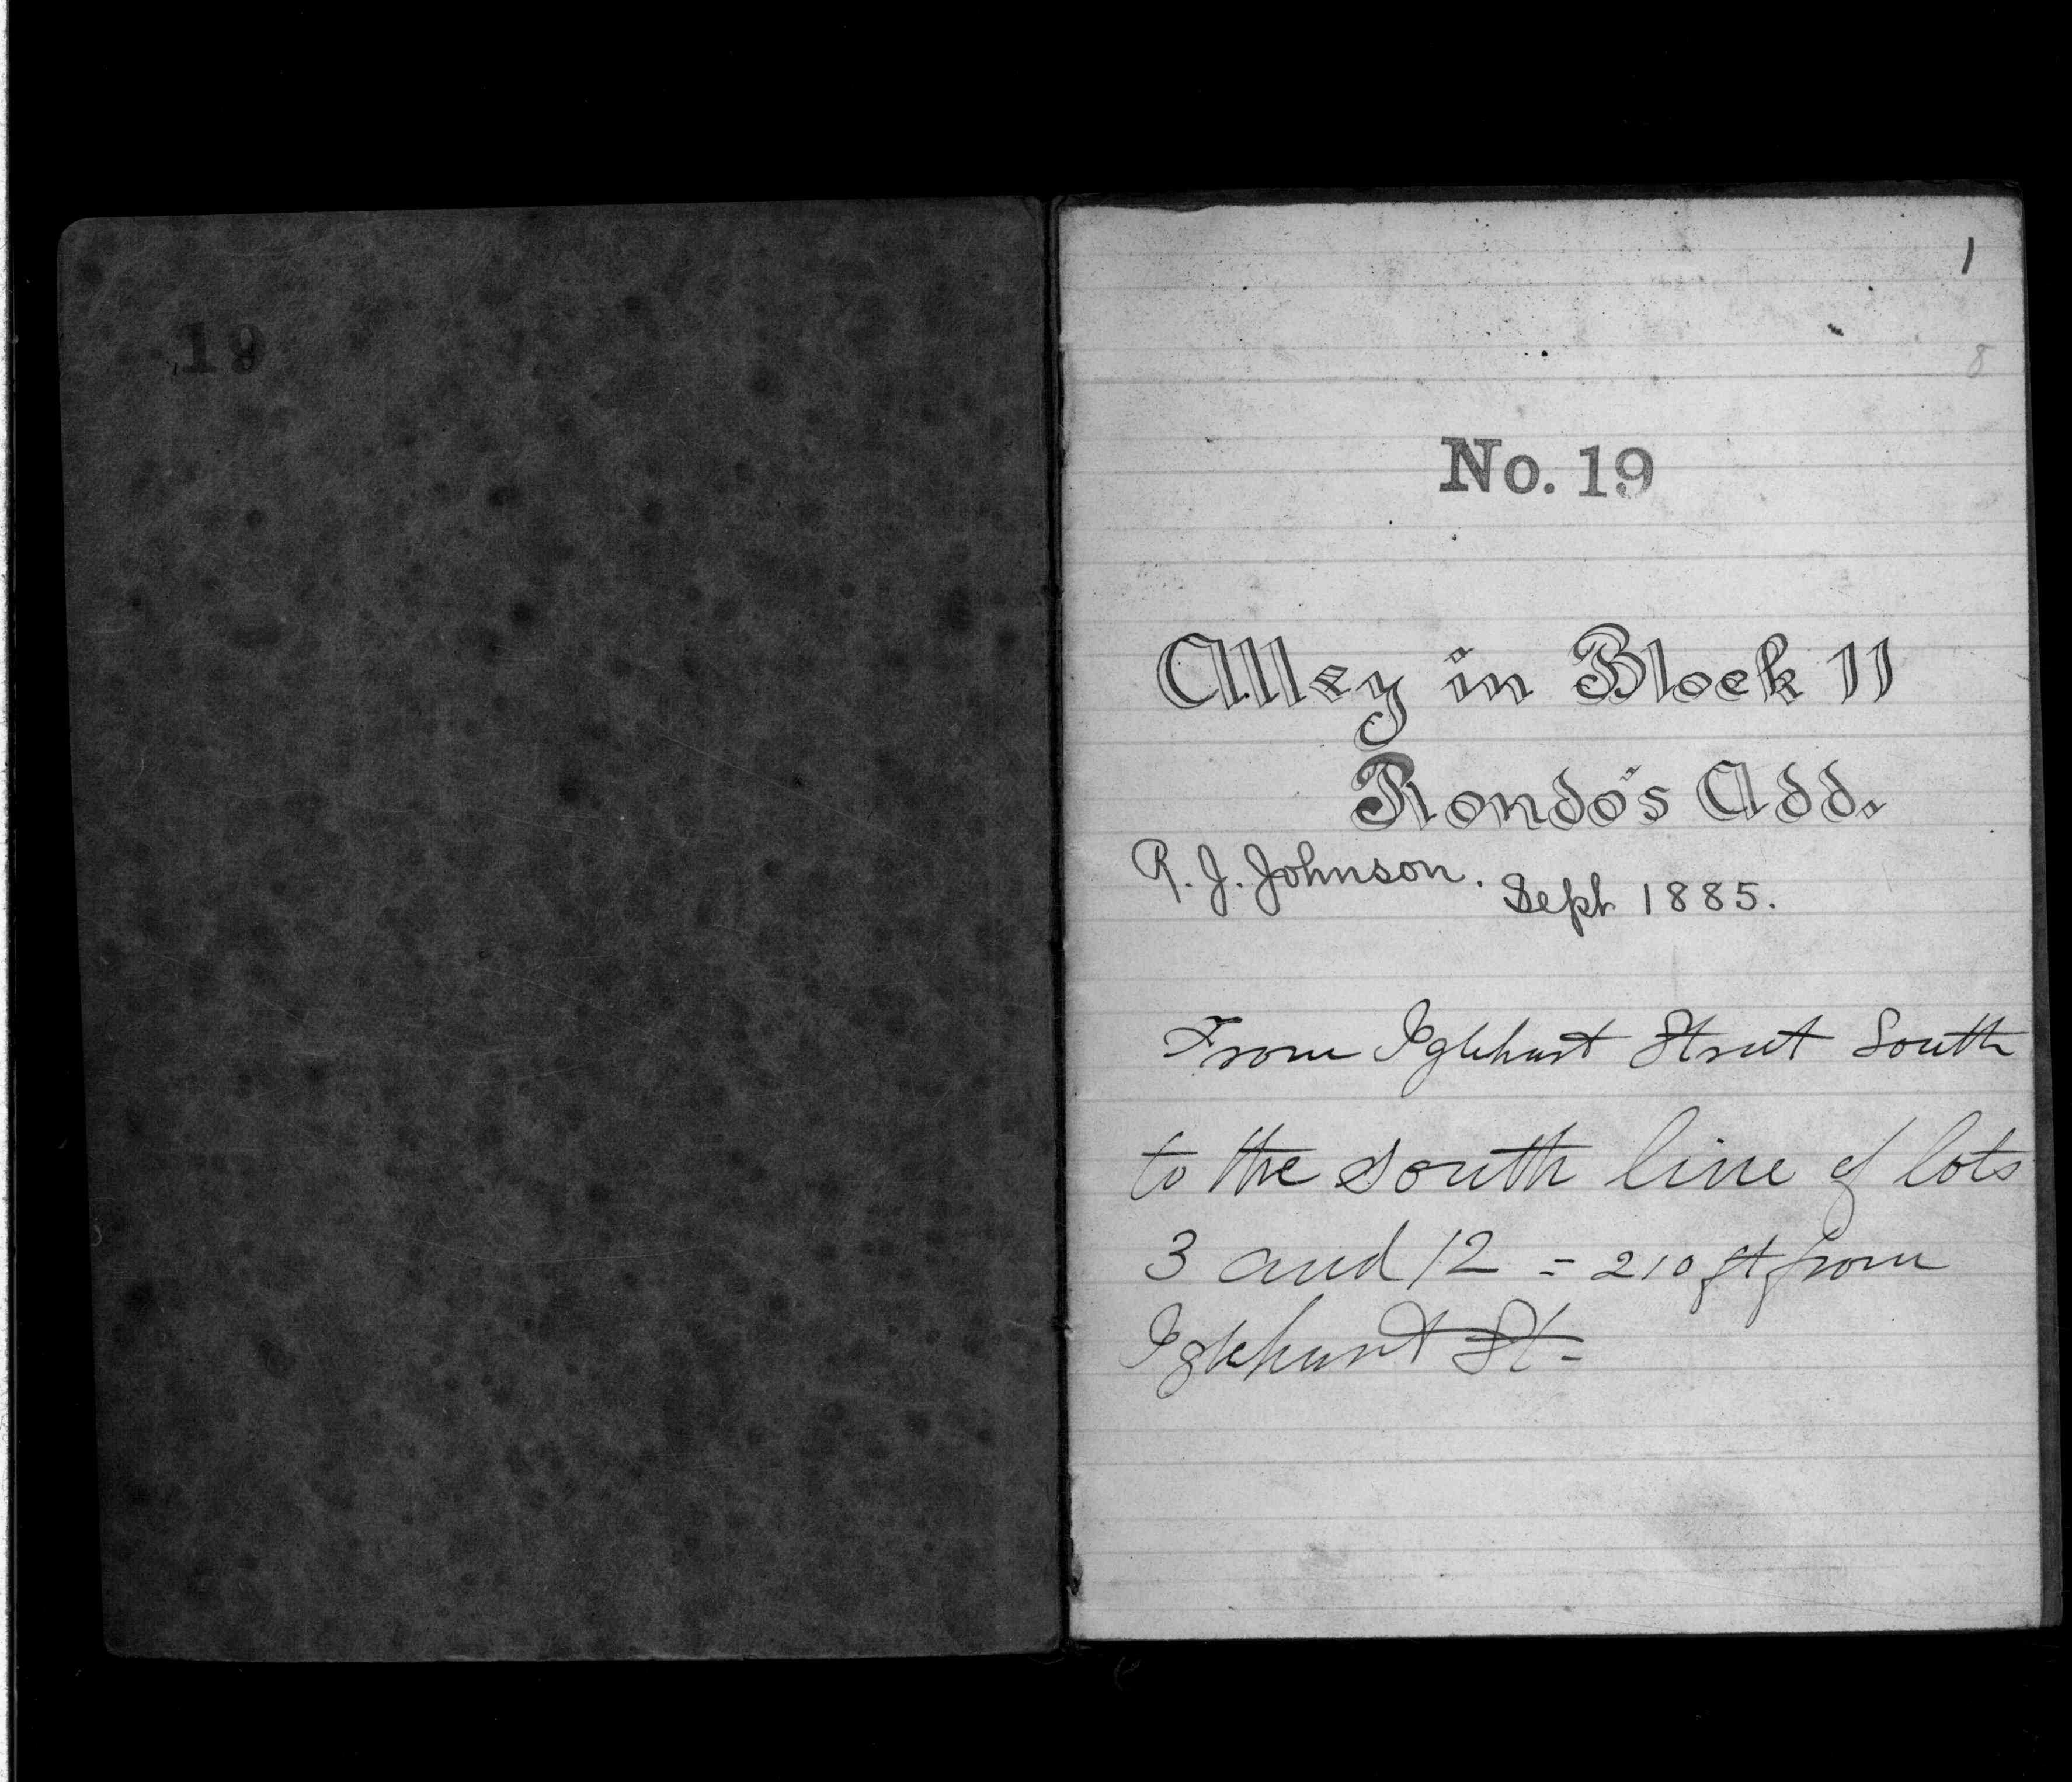 19
1
8
No. 19
Alley in Block 11
Rondo's Add.
R. J. Johnson. Sept 1885.
From Iglehart Street South
to the South line of lots
3 and 12 = 210 ft from
Iglehart St.